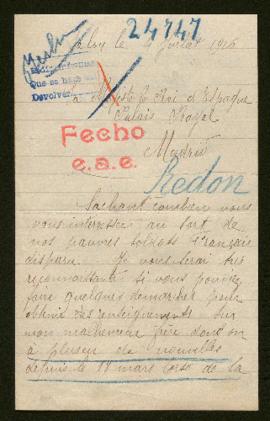 24747
le 4 Juillet 1916
Devolver
à Majesté le Roi d'Espagne
Palais Royal
Fecho
e.a.e.
Madrid
Redon
Sachant combien vous
vous interessez au sort de
nos pauvres soldats français
disparu. Je vous serai très
reconnaissante si vous pouviez
faire quelques demarches pour
obtenir des renseignements sur
mon malheureux frère dont on
à plus de nouvelles
depuis le 18 mars de la